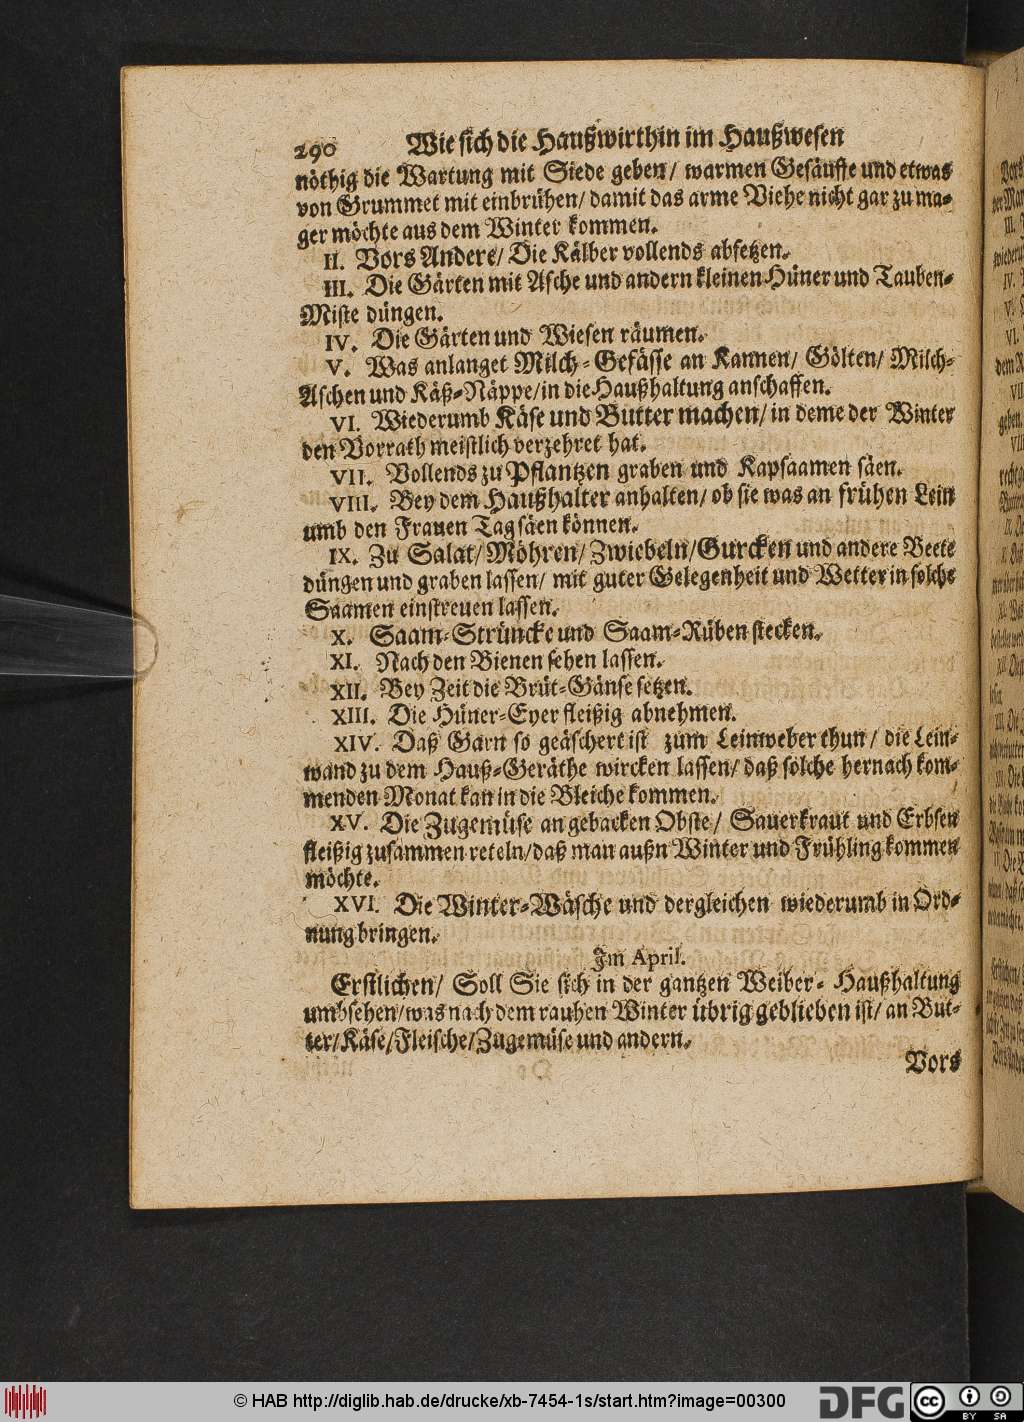 290 Wie sich die Haußwirthin im Haußwesen
nöthig die Wartung mit Siede geben/ warmen Gesäuffe und etwas
von Grummet mit einbrühen/ damit das arme Viehe nicht gar zu ma-
ger möchte aus dem Winter kommen.
II. Vors Andere/ Die Kälber vollends absetzen.
III. Die Gärten mit Asche und andern kleinen Hüner und Tauben-
Miste düngen.
IV. Die Gärten und Wiesen räumen.
V. Was anlanget Milch-Gefässe an Kannen/ Gölten/ Milch-
Aschen und Käß-Näppe/ in die Haußhaltung anschaffen.
VI. Wiederumb Käse und Butter machen/ in deme der Winter
den Vorrath meistlich verzehret hat.
VII. Vollends zu Pflantzen graben und Kapsaamen säen.
VIII. Bey dem Haußhalter anhalten/ ob sie was an frühen Lein
umb den Frauen Tag säen können.
IX. Zu Salat/ Möhren/ Zwiebeln/ Gurcken und andere Beete
düngen und graben lassen/ mit guter Gelegenheit und Wetter in solche
Saamen einstreuen lassen.
X. Saam-Strüncke und Saam-Rüben stecken.
XI. Nach den Bienen sehen lassen.
XII. Bey Zeit die Brüt-Gänse setzen.
XIII. Die Hüner-Eyer fleißig abnehmen.
XIV. Daß Garn so geäschert ist zum Leinweber thun/ die Lein-
wand zu dem Hauß-Geräthe wircken lassen/ daß solche hernach kom-
menden Monat kan in die Bleiche kommen.
XV. Die Zugemüse an gebacken Obste/ Sauerkraut und Erbsen
fleißig zusammen reteln/ daß man außn Winter und Frühling kommen
möchte.
XVI. Die Winter-Wäsche und dergleichen wiederumb in Ord-
nung bringen.
Im April.
Erstlichen/ Soll Sie sich in der gantzen Weiber-Haußhaltung
umbsehen/ was nach dem rauhen Winter übrig geblieben ist/ an But-
ter/ Käse/ Fleische/ Zugemüse und andern.
Vors
© HAB http://diglib.hab.de/drucke/xb-7454-1s/start.htm?image=00300
DFG
cc BY SA